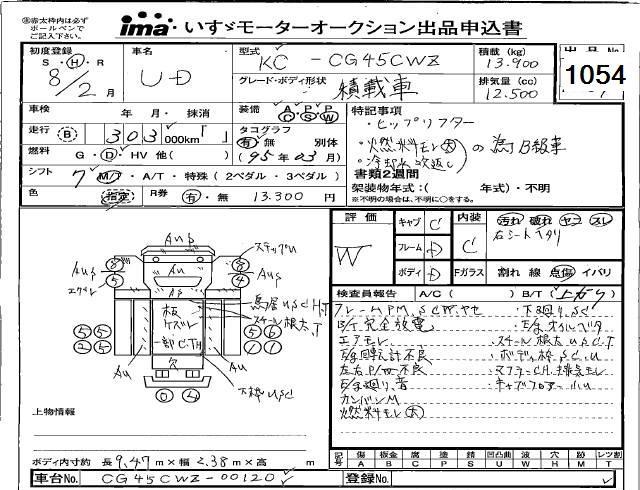 ㊟赤太枠内は必ず
ボールペンで
ご記入下さい。
ima いすゞモーターオークション出品申込書
初度登録
S・H・R
8/2月
車名
UD
型式
KC-CG45CWZ
グレード・ボディ形状
積載車
積載 (kg)
13.900
排気量 (cc)
12.500
出品No
1054
車検 年・月・抹消
装備 A/C P/S P/W
走行 B 303,000km「 」
タコグラフ
有・無 別体
(95年03月)
燃料 G・D・HV 他( )
シフト 7 M/T・A/T・特殊(2ペダル・3ペダル)
色 指定
R券 有・無 13.300円
特記事項
・ヒップリフター
・燃料モレ大
・冷却水吹返し
の為B級車
書類2週間
架装物年式:( 年式)・不明
※不明の場合は、不明に○をする。
評価
W
キャブ C
フレーム D
ボディ D
内装 C
汚れ 破れ ヤコ スレ
右シートヘタリ
Fガラス 割れ 線 点傷 イバリ
検査員報告 A/C( ) B/T(上がり)
B/T完全放電
エアモレ
E/g回転計不良
左右P/W不良
E/g廻り、音
カンバンM
燃料モレ大
・下廻りS.C
・E/gオイルベタ
・スチール根太US.C.T
・ボディ枠S.C.U
・マフラーC.H.排気モレ
・キャブフロアー小U
Aup
ステップU
Au
板
欠
下枠USC
上物情報
ボディ内寸約 長9.47m×幅2.38m×高 m
記号 傷A 板金B 腐C 塗P 錆S 凹凸曲U 波W 穴H 跡M レンズ割T
車台No. CG45CWZ-00120
登録No.